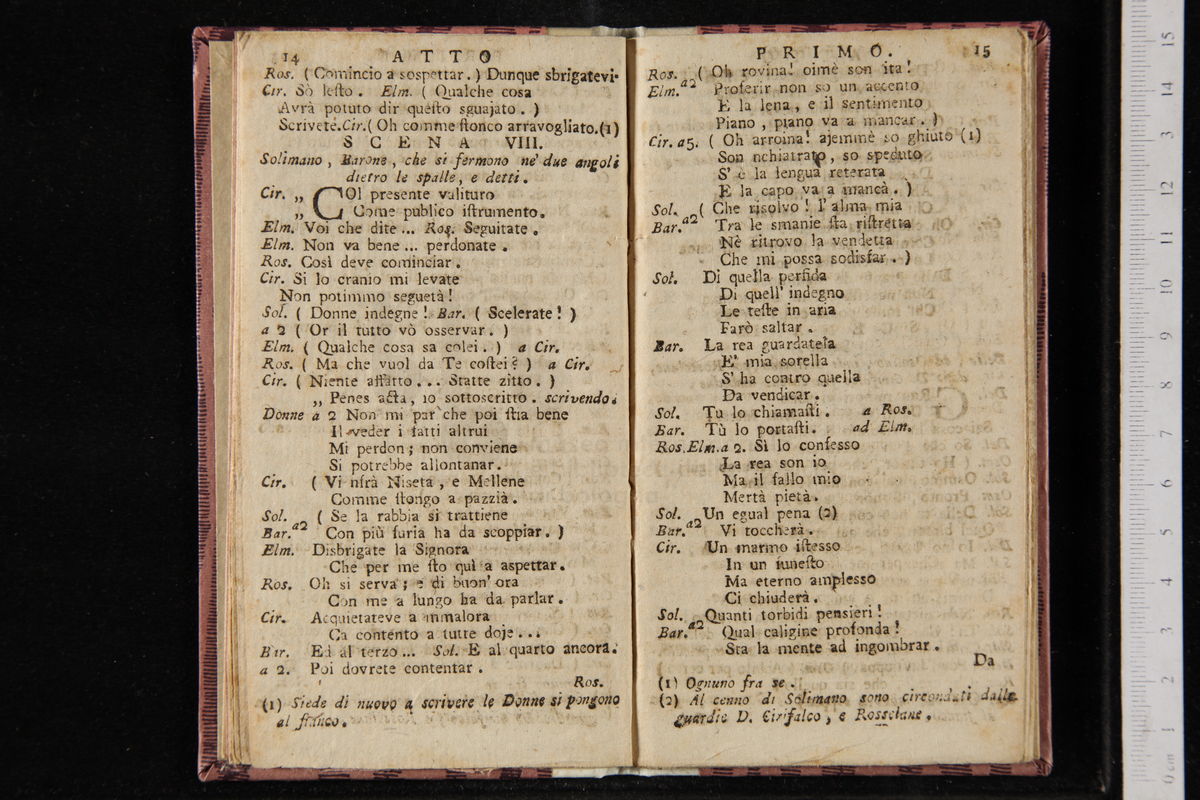 14 ATTO
Ros. ( Comincio a sospettar. ) Dunque sbrigatevi.
Cir. Sò leſto. Elm. ( Qualche cosa
Avrà potuto dir queſto sguajato. )
Scrivete. Cir. ( Oh comme ſtonco arravogliato. (1)
SCENA VIII.
Solimano, Barone, che si fermono ne' due angoli
dietro le spalle, e detti.
Cir. „ COl presente valituro
„ Come publico iſtrumento.
Elm. Voi che dite ... Ros. Seguitate.
Elm. Non va bene ... perdonate.
Ros. Così deve cominciar.
Cir. Si lo cranio mi levate
Non potimmo seguetà!
Sol. ( Donne indegne! Bar. ( Scelerate! )
a 2 ( Or il tutto vò osservar. )
Elm. ( Qualche cosa sa colei. ) a Cir.
Ros. ( Ma che vuol da Te coſtei? ) a Cir.
Cir. ( Niente affatto ... Statte zitto. )
„ Penes acta, io sottoscritto. scrivendo.
Donne a 2 Non mi par che poi ſtia bene
Il veder i fatti altrui
Mi perdon; non conviene
Si potrebbe allontanar.
Cir. ( Vi nfrà Niseta, e Mellene
Comme ſtongo a pazzià.
Sol. ( Se la rabbia si trattiene
Bar. a2 Con più furia ha da scoppiar. )
Elm. Disbrigate la Signora
Che per me ſto quì a aspettar.
Ros. Oh si serva; e di buon' ora
Con me a lungo ha da parlar.
Cir. Acquietateve a mmalora
Ca contento a tutte doje ...
Bar. Ed al terzo ... Sol. E al quarto ancora.
a 2. Poi dovrete contentar.
Ros.
(1) Siede di nuovo a scrivere le Donne si pongono
al fianco.
PRIMO. 15
Ros. ( Oh rovina! oimè son ita!
Elm. a2 Proferir non so un accento
E la lena, e il sentimento
Piano, piano va a mancar. )
Cir. a 5. ( Oh arroina! ajemmè so ghiuto (1)
Son nchiatrato, so speduto
S' è la lengua reterata
E la capo va a mancà. )
Sol. ( Che risolvo! l' alma mia
Bar. a2 Tra le smanie ſta riſtretta
Nè ritrovo la vendetta
Che mi possa sodisfar. )
Sol. Di quella perfida
Di quell' indegno
Le teſte in aria
Farò saltar.
Bar. La rea guardatela
E' mia sorella
S' ha contro quella
Da vendicar.
Sol. Tu lo chiamaſti. a Ros.
Bar. Tù lo portaſti. ad Elm.
Ros. Elm. a 2. Sì lo confesso
La rea son io
Ma il fallo mio
Mertà pietà.
Sol. Un egual pena (2)
Bar. a2 Vi toccherà.
Cir. Un marmo iſtesso
In un funeſto
Ma eterno amplesso
Ci chiuderà.
Sol. Quanti torbidi pensieri!
Bar. a2 Qual caligine profonda!
Sta la mente ad ingombrar.
Da
(1) Ognuno fra se.
(2) Al cenno di Solimano sono circondati dalle
guardie D. Cirifalco, e Rosselane.